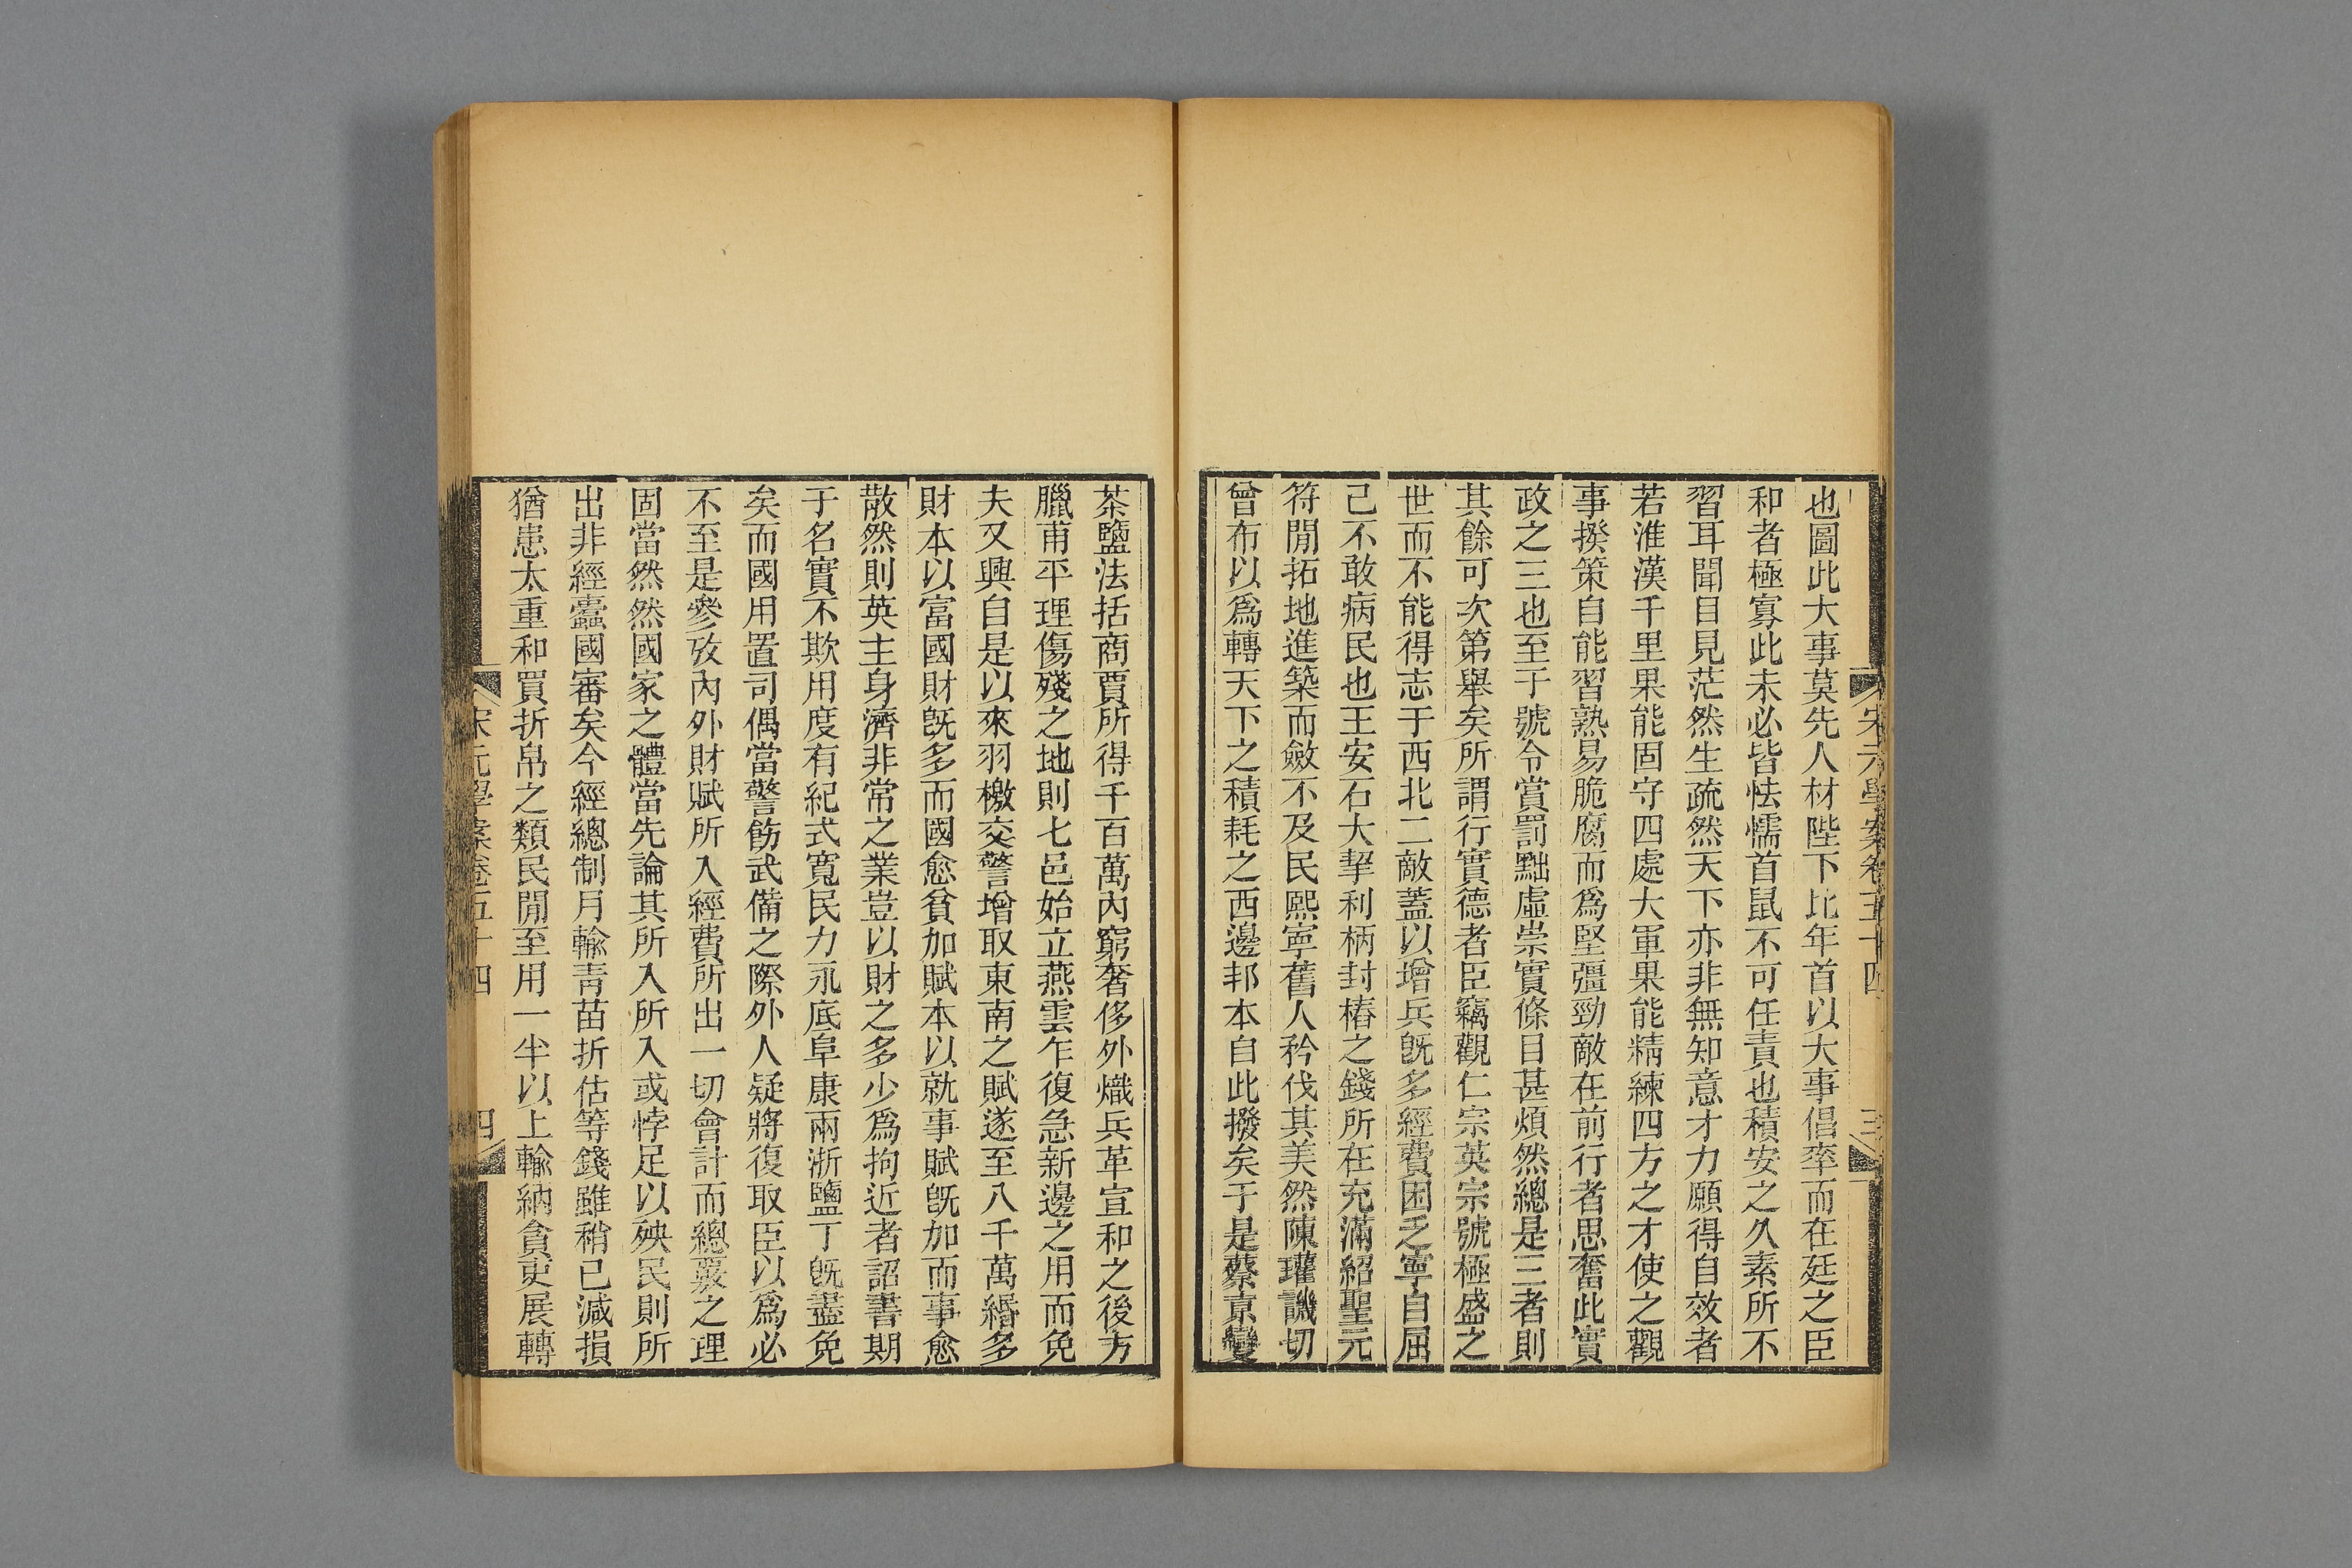 宋元學案卷五十四
三
也圖此大事莫先人材陛下比年首以大事倡率而在廷之臣
和者極寡此未必皆怯懦首鼠不可任責也積安之久素所不
習耳聞目見茫然生疏然天下亦非無知意才力願得自效者
若淮漢千里果能固守四處大軍果能精練四方之才使之觀
事揆策自能習熟易脆腐而爲堅彊勁敵在前行者思奮此實
政之三也至于號令賞罰黜虛崇實條目甚煩然總是三者則
其餘可次第舉矣所謂行實德者臣竊觀仁宗英宗號極盛之
世而不能得志于西北二敵蓋以增兵旣多經費困乏寧自屈
己不敢病民也王安石大挈利柄封樁之錢所在充滿紹聖元
符閒拓地進築而斂不及民熙寧舊人矜伐其美然陳瓘譏切
曾布以爲轉天下之積耗之西邊邦本自此撥矣于是蔡京變
茶鹽法括商賈所得千百萬內窮奢侈外熾兵革宣和之後方
臘甫平理傷殘之地則七邑始立燕雲乍復急新邊之用而免
夫又興自是以來羽檄交警增取東南之賦遂至八千萬緡多
財本以富國財旣多而國愈貧加賦本以就事賦旣加而事愈
散然則英主身濟非常之業豈以財之多少爲拘近者詔書期
于名實不欺用度有紀式寬民力永底阜康兩浙鹽丁旣蠲免
矣而國用置司偶當警飭武備之際外人疑將復取臣以爲必
不至是參攷內外財賦所入經費所出一切會計而總覈之理
固當然然國家之體當先論其所入所入或悖足以殃民則所
出非經蠹國審矣今經總制月輸青苗折估等錢雖稍已減損
猶患太重和買折帛之類民閒至用一半以上輸納貪吏展轉
宋元學案卷五十四
四